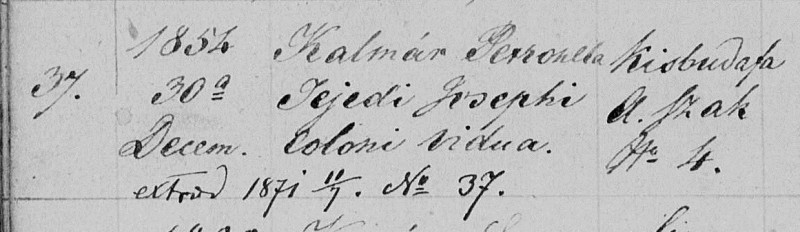 37. 1854 Kalmár Petronella Kisbudafa
30ª Jejedi Josephi A. Szak
Decem. Coloni vidua. No 4.
extrad 1871 11/1. No 37.